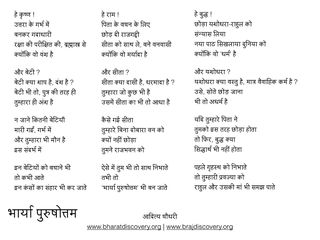 हे कृष्ण !
उत्तरा के गर्भ में
बनकर गदाधारी
रक्षा की परीक्षित की, ब्रह्मास्त्र से
क्योंकि वो वंश है

और बेटी ?
बेटी क्या शाप है, वंश है ?
बेटी भी तो, पुत्र की तरह ही
तुम्हारा ही अंश है

न जाने कितनी बेटियाँ
मारी गईं, गर्भ में
और तुम्हारा भी मौन है
इस संबंध में

इन बेटियों को बचाने भी
तो कभी आते
इन कंसों का संहार भी कर जाते

हे राम !
पिता के वचन के लिए
छोड़ दी राजगद्दी
सीता को साथ ले, बने वनवासी
क्योंकि वो मर्यादा है

और सीता ?
सीता क्या दासी है, धरमादा है ?
तुम्हारा जो कुछ भी है
उसमें सीता का भी तो आधा है

कैसे गईं सीता
तुम्हारे बिना दोबारा वन को
क्यों नहीं छोड़ा
तुमने राजभवन को

ऐसे में तुम भी तो साथ निभाते
तो
'भार्या पुरुषोत्तम' भी बन जाते

हे बुद्ध !
छोड़ा यशोधरा-राहुल को
संन्यास लिया
नया पाठ सिखलाया दुनिया को
क्योंकि वो 'धर्म' है

और यशोधरा ?
यशोधरा क्या वस्तु है, मात्र वैवाहिक कर्म है ?
उसे, सोते छोड़ जाना
भी तो अधर्म है

यदि तुम्हारे पिता ने
तुमको इस तरह छोड़ा होता
तो फिर, बुद्ध क्या
सिद्धार्थ भी नहीं होता

पहले गृहस्थ को निभाते
तो तुम्हारी प्रव्रज्या को
राहुल और उसकी मां भी समझ पाते

भार्या पुरुषोत्तम
आदित्य चौधरी
www.bharatdiscovery.org | www.brajdiscovery.org